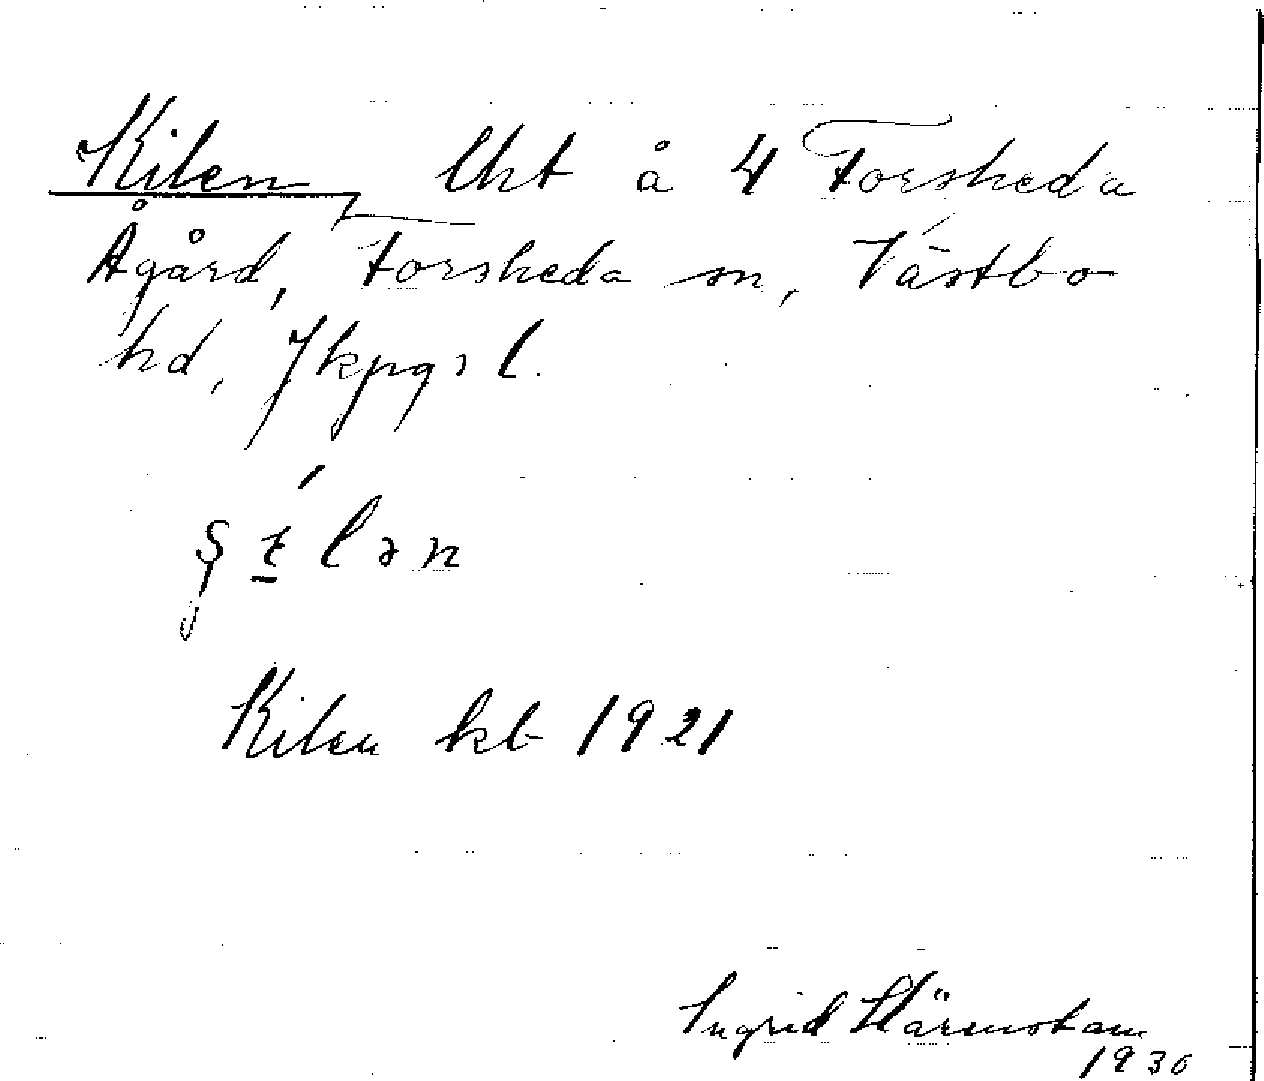 Kilen, lht å 4 Forsheda
Ågård, Forsheda sn, Västbo
hd, Jkpgs l.
Kilen kb 1921
Ingrid Härenstam
1930